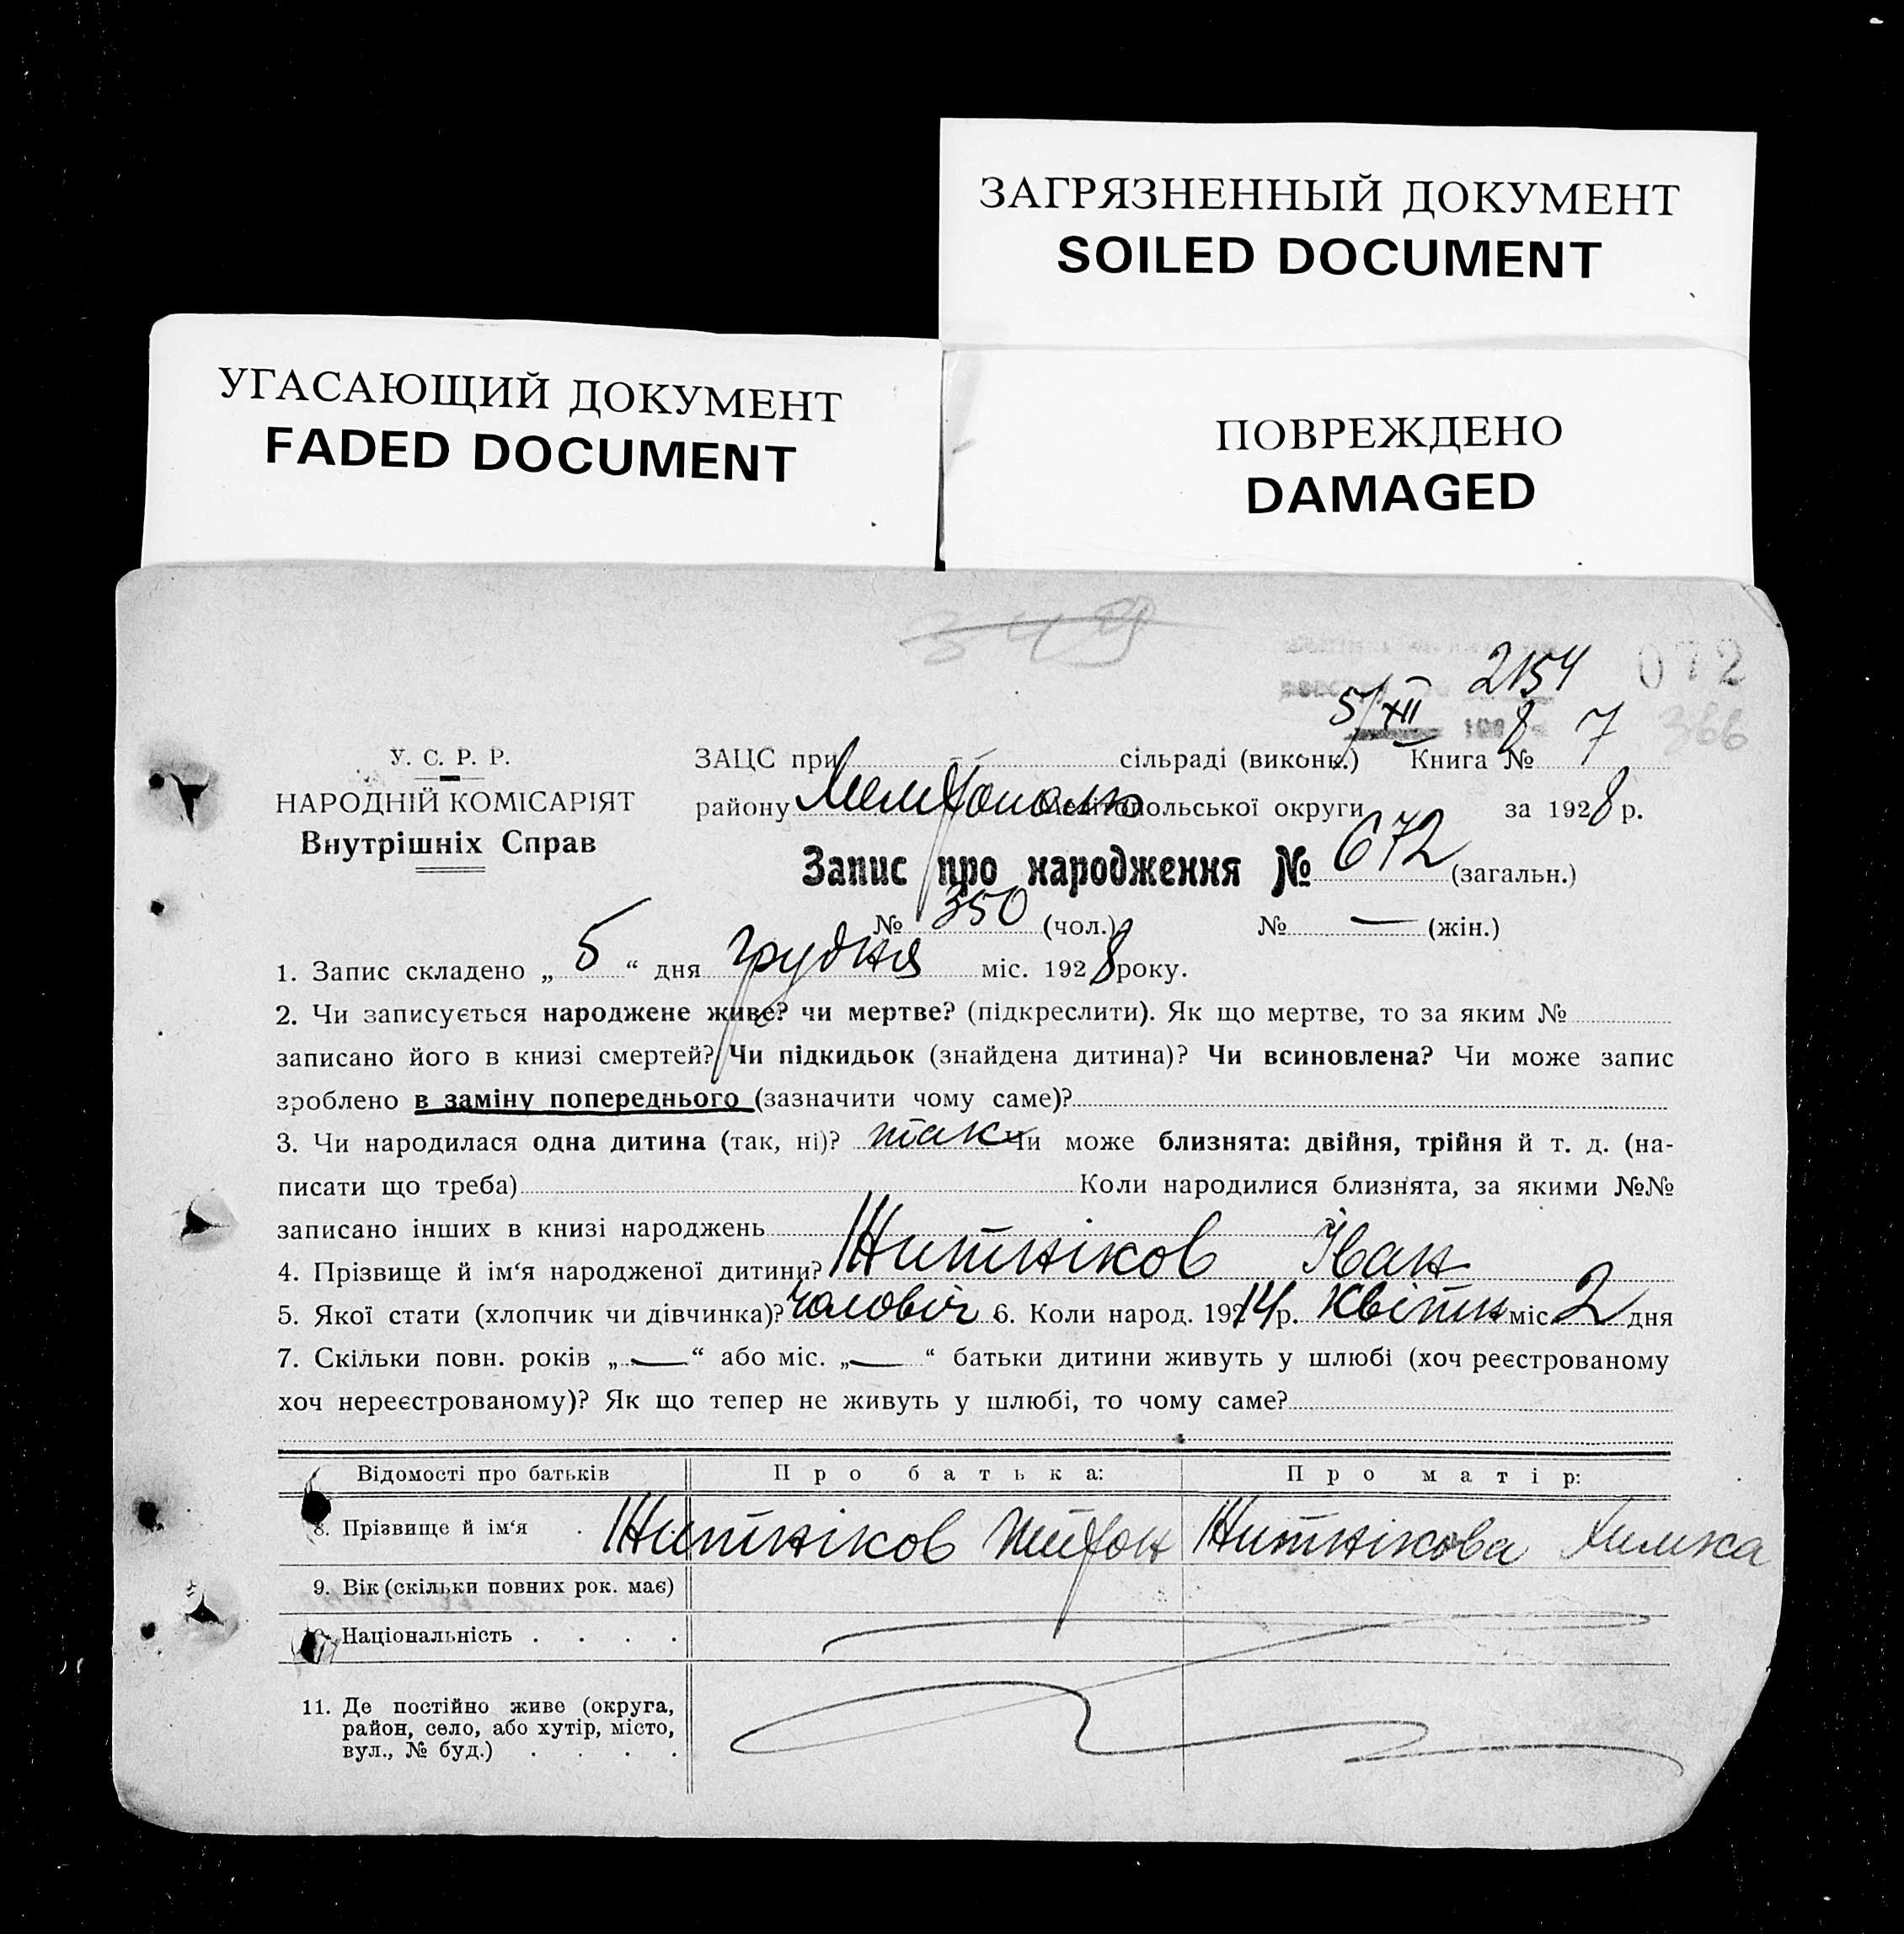 ЗАГРЯЗНЕННЫЙ ДОКУМЕНТ
SOILED DOCUMENT
УГАСАЮЩИЙ ДОКУМЕНТ
FADED DOCUMENT
ПОВРЕЖДЕНО
DAMAGED
349
2154 072
5/XII
366
У. С. Р. Р.
НАРОДНІЙ КОМІСАРІЯТ
Внутрішніх Справ
ЗАЦС при сільраді (виконк.) Книга № 7
району Мелітопольської округи за 1928 р.
Запис про народження № 672 (загальн.)
№ 350 (чол.) № — (жін.)
1. Запис складено „ 5 “ дня грудня міс. 1928 року.
2. Чи записується народжене живе? чи мертве? (підкреслити). Як що мертве, то за яким №
записано його в книзі смертей? Чи підкидьок (знайдена дитина)? Чи всиновлена? Чи може запис
зроблено в заміну попереднього (зазначити чому саме)?
3. Чи народилася одна дитина (так, ні)? так Чи може близнята: двійня, трійня й т. д. (на-
писати що треба) Коли народилися близнята, за якими №№
записано інших в книзі народжень
4. Прізвище й ім‘я народженої дитини? Житніков Іван
5. Якої стати (хлопчик чи дівчинка)? чоловіч 6. Коли народ. 1914 р. квітн міс. 2 дня
7. Скільки повн. років „ — “ або міс. „ — “ батьки дитини живуть у шлюбі (хоч реєстрованому
хоч нереєстрованому)? Як що тепер не живуть у шлюбі, то чому саме?
Відомості про батьків Про батька: Про матір:
8. Прізвище й ім‘я Житніков Житнікова Химка
9. Вік (скільки повних рок. має)
10. Національність
11. Де постійно живе (округа,
район, село, або хутір, місто,
вул., № буд.)